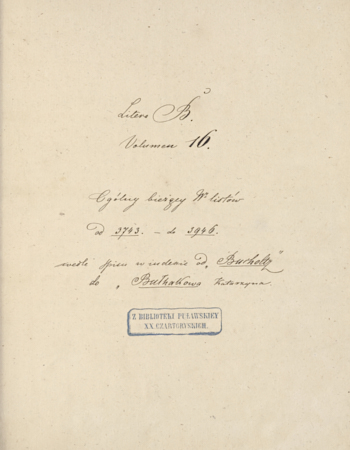 Litera B.
Volumen 16.
Ogólny bieżący Nr listów
od 3743. – do 3946.
wedł. spisu w indexie od „Bucholtz"
do „Bułhakowa Katarzyna.
Z BIBLIOTEKI PUŁAWSKIEY
XX. CZARTORYSKICH.